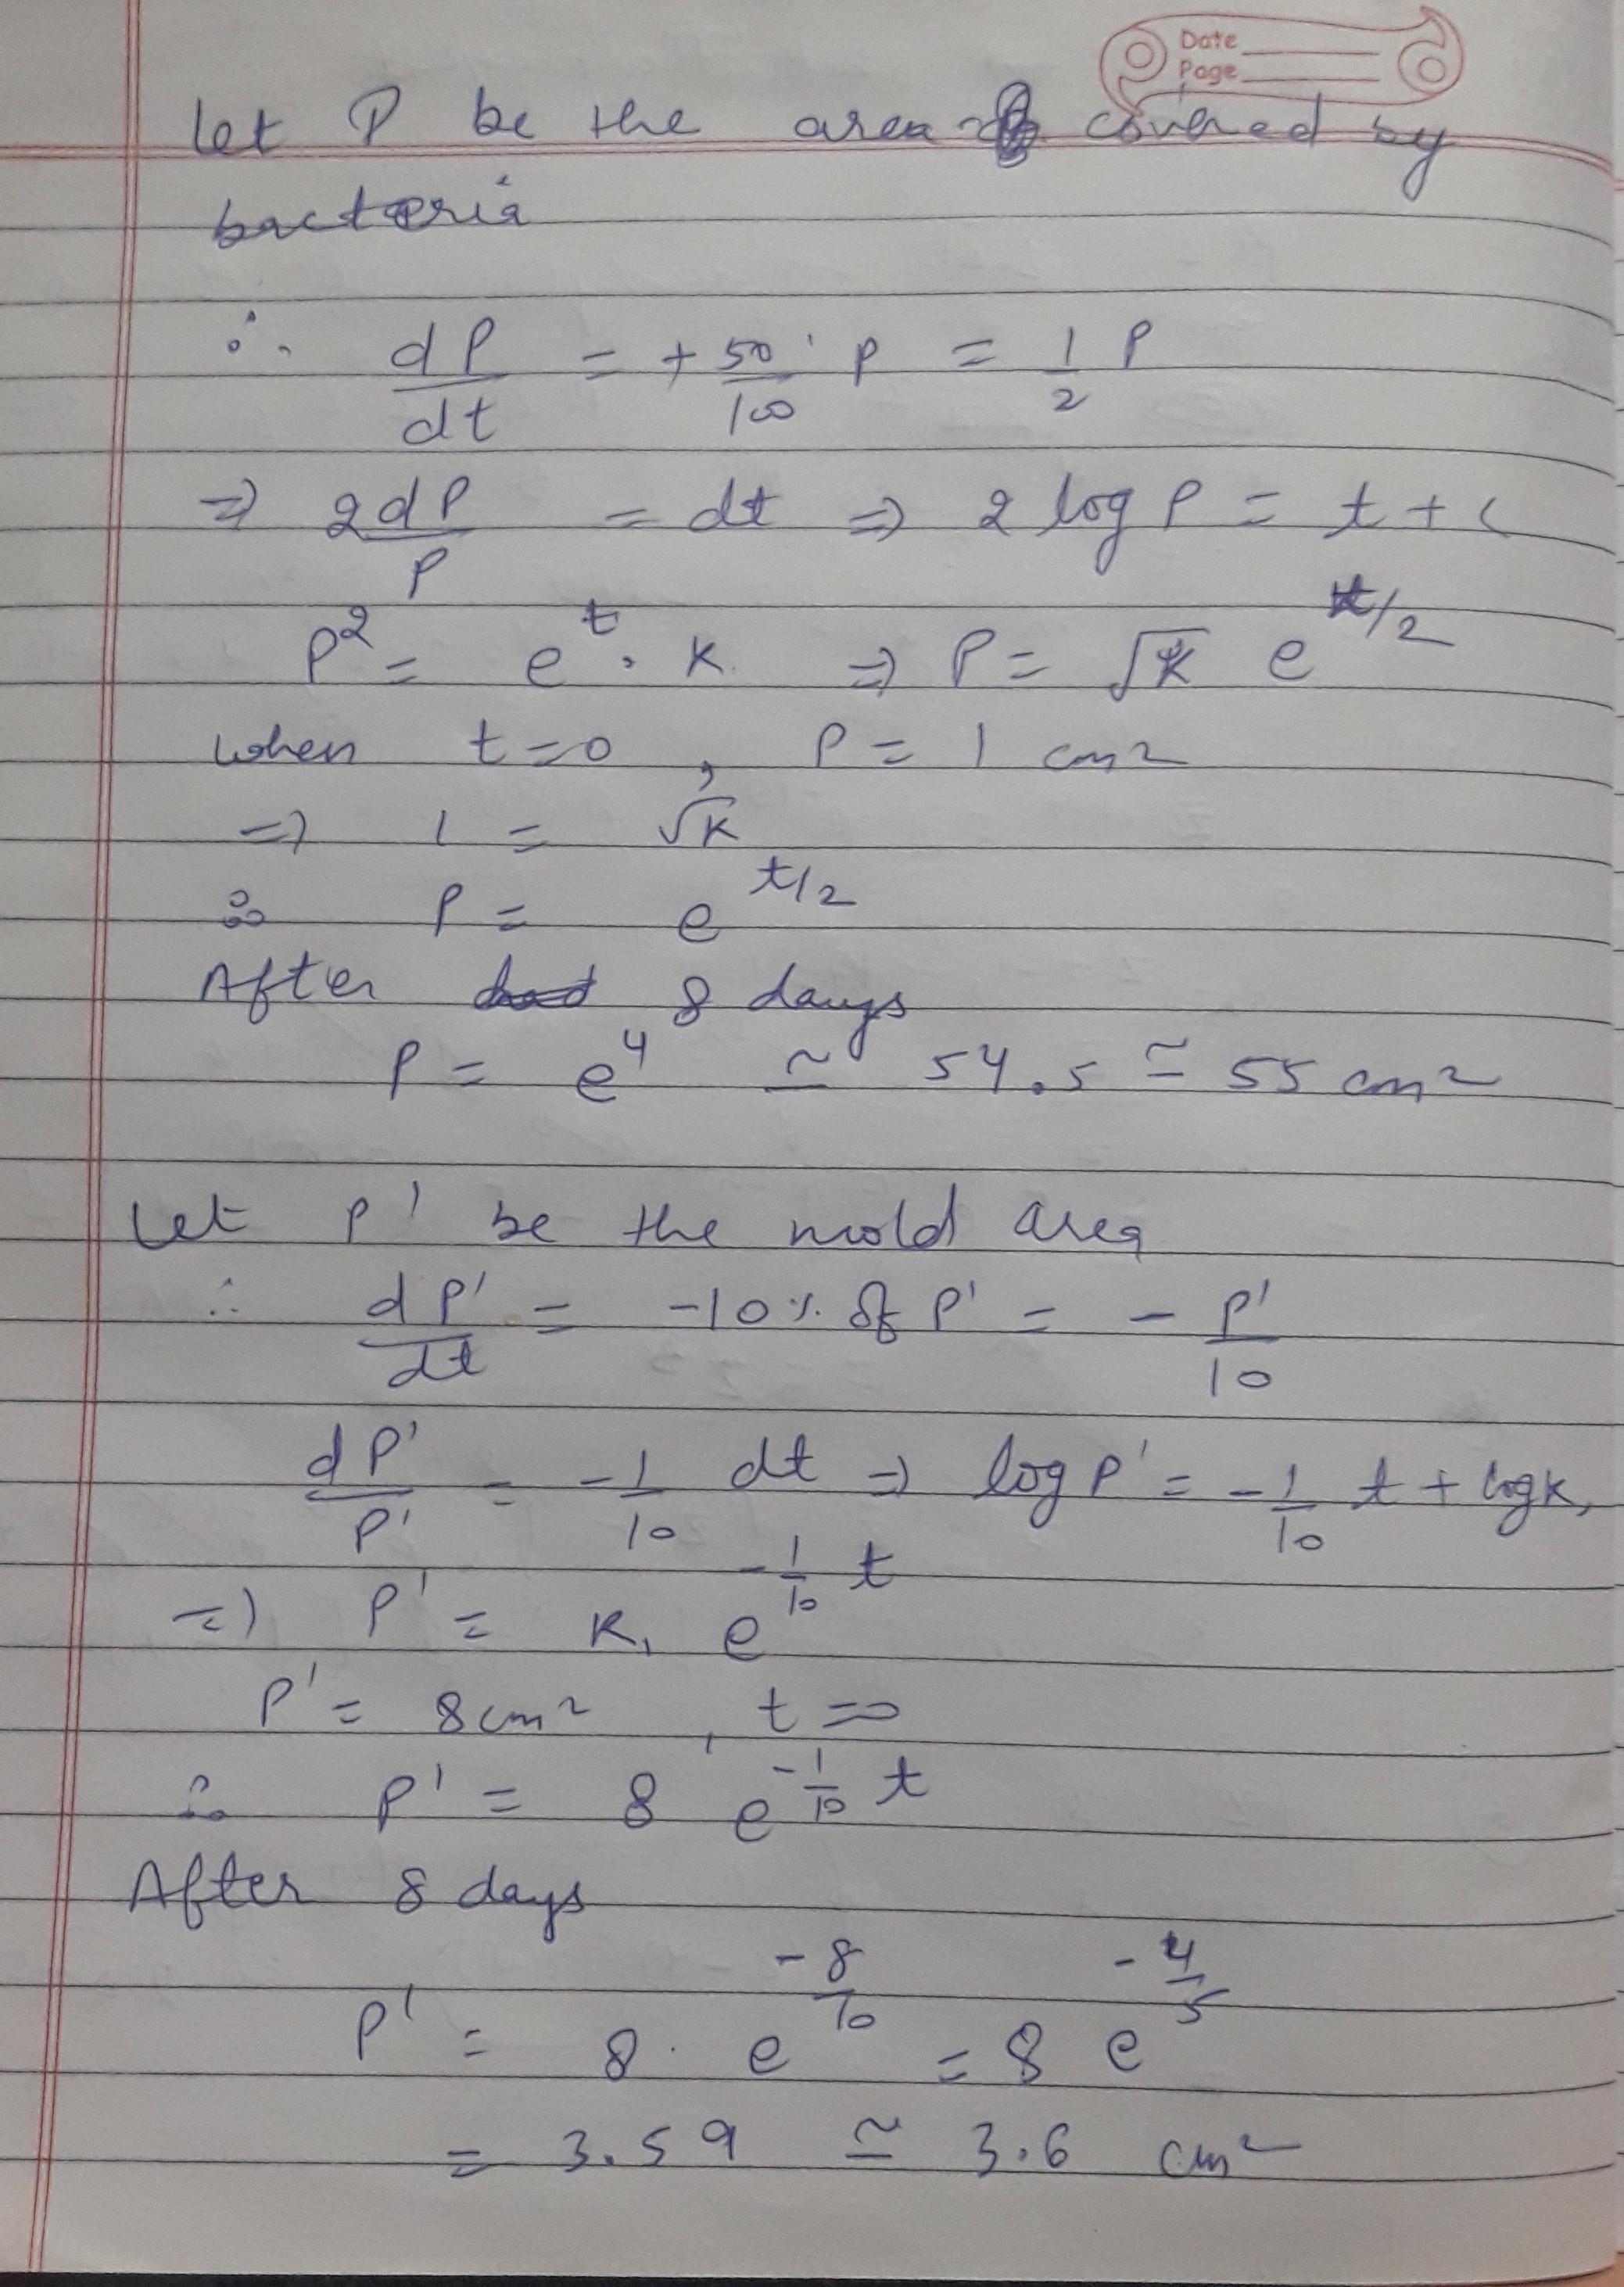 Date
Page
Let P be the area covered by
bacteria
∴ dP/dt = + 50/100 · P = 1/2 P
⇒ 2dP/P = dt ⇒ 2 log P = t + c
P² = e^t · k ⇒ P = √k e^t/2
When t=0, P = 1 cm²
⇒ 1 = √k
∴ P = e^t/2
After 8 days
P = e⁴ ≃ 54.5 ≃ 55 cm²
Let P' be the mold area
∴ dP'/dt = -10% of P' = - P'/10
dP'/P' = -1/10 dt ⇒ log P' = -1/10 t + log k₁
⇒ P' = k₁ e^-1/10 t
P' = 8cm², t=0
∴ P' = 8 e^-1/10 t
After 8 days
P' = 8 · e^-8/10 = 8 e^-4/5
= 3.59 ≃ 3.6 cm²